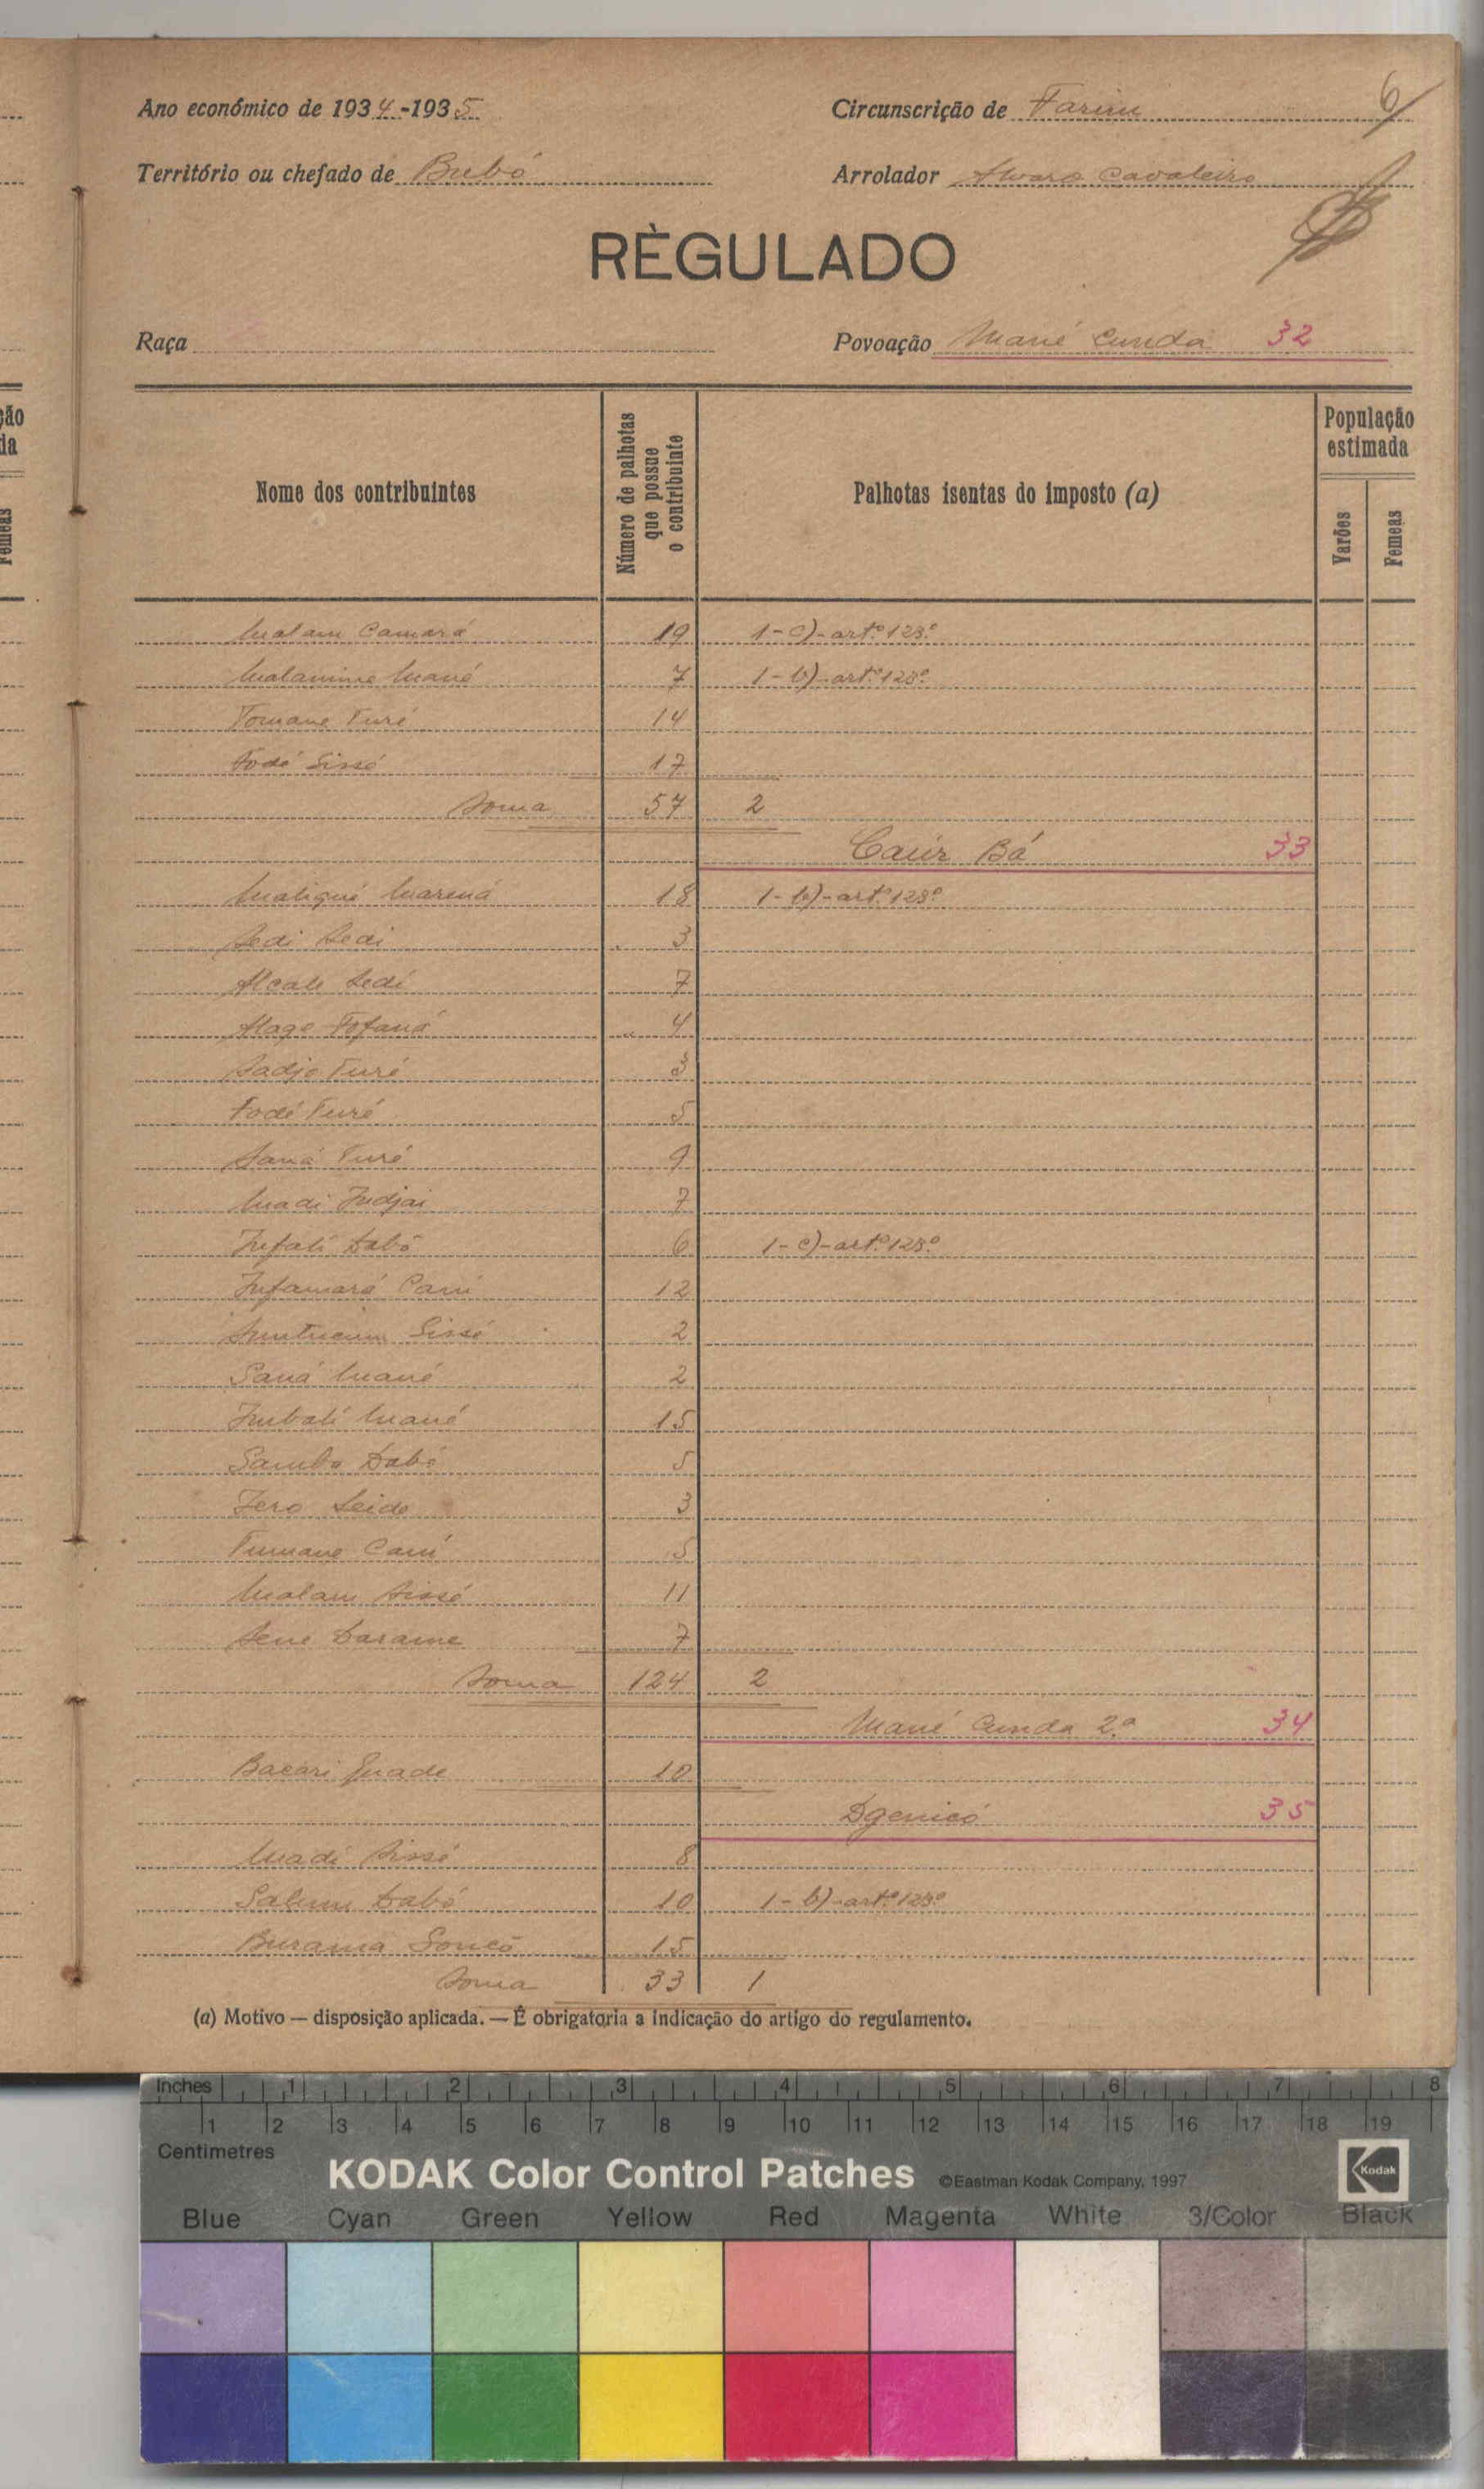 6
Ano económico de 1934-1935 Circunscrição de Farim
Território ou chefado de Bubó Arrolador Alvaro Cavaleiro
RÈGULADO
Raça Povoação Mané Cunda 32
Nome dos contribuintes Número de palhotas que possue o contribuinte Palhotas isentas do imposto (a) População estimada Varões Femeas
Malam Camará 19 1-c)-artº.123º
Malamine Mané 7 1-b)-artº.123º
Tomane Turé 14
Fodé Sissé 17
Soma 57 2
Caúr Bá 33
Maliqui Marená 18 1-b)-artº.123º
Sedi Sedi 3
Alcale Sedi 7
Alage Fofaná 4
Sadjo Turé 3
Fodé Turé 5
Saná Turé 9
Madi Indjai 7
Infali Dabó 6 1-c)-artº.123º
Infamará Cani 12
Sissé 2
Saná Mané 2
Imbali Mané 15
Samba Dabó 5
Jero Seide 3
Tumane Cani 5
Malam Sissé 11
Sene Darame 7
Soma 124 2
Mané Cunda 2ª 34
Bacari 10
Dgenicó 35
Madi Sissé 8
Salum Dabó 10 1-b)-artº.123º
Burama Soncó 15
Soma 33 1
(a) Motivo — disposição aplicada. — É obrigatoria a indicação do artigo do regulamento.
Inches 1 2 3 4 5 6 7 8
1 2 3 4 5 6 7 8 9 10 11 12 13 14 15 16 17 18 19
Centimetres
KODAK Color Control Patches ©Eastman Kodak Company, 1997 Kodak
Blue Cyan Green Yellow Red Magenta White 3/Color Black